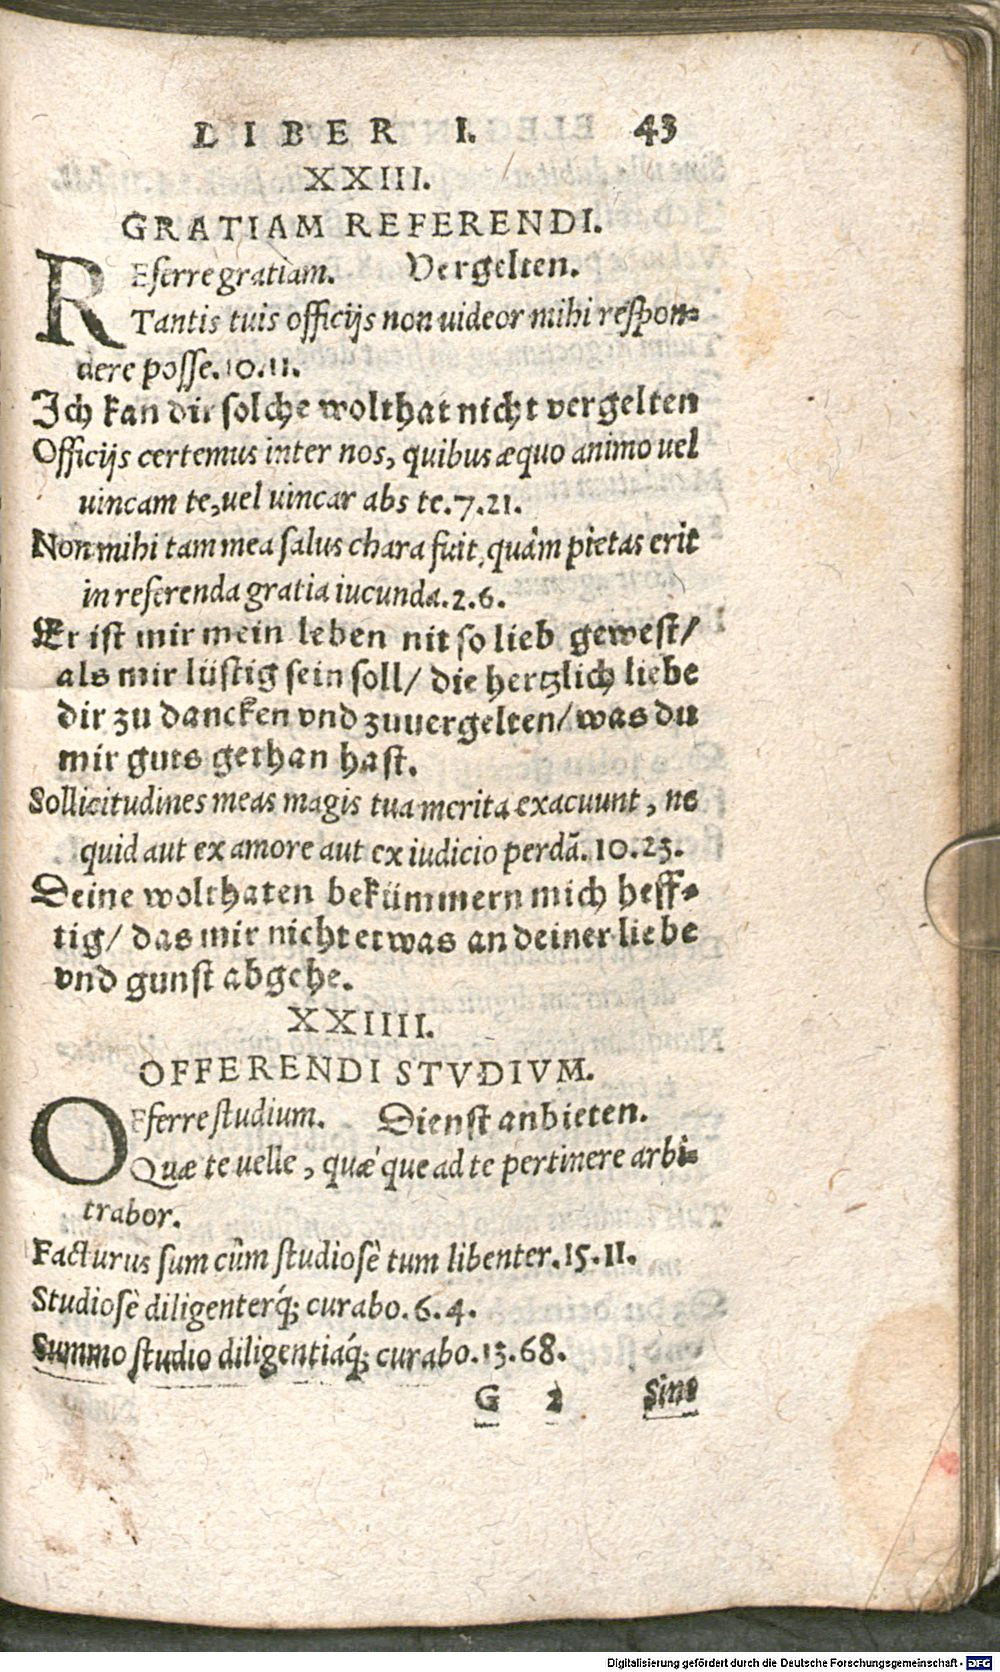 LIBER I. 43
XXIII.
GRATIAM REFERENDI.
REferre gratiam. Vergelten.
Tantis tuis officijs non uideor mihi respon=
dere posse. 10. 11.
Ich kan dir solche wolthat nicht vergelten
Officijs certemus inter nos, quibus æquo animo uel
uincam te, uel uincar abs te. 7. 21.
Non mihi tam mea salus chara fuit, quàm pietas erit
in referenda gratia iucunda. 2. 6.
Er ist mir mein leben nit so lieb gewest/
als mir lüstig sein soll/ die hertzlich liebe
dir zu dancken vnd zuuergelten/ was du
mir guts gethan hast.
Sollicitudines meas magis tua merita exacuunt, ne
quid aut ex amore aut ex iudicio perdã. 10. 23.
Deine wolthaten bekümmern mich heff=
tig/ das mir nicht etwas an deiner liebe
vnd gunst abgehe.
XXIIII.
OFFERENDI STVDIVM.
OFferre studium. Dienst anbieten.
Quæ te uelle, quæ´que ad te pertinere arbi=
trabor.
Facturus sum cũm studiosè tum libenter. 15. 11.
Studiosè diligenterq́; curabo. 6. 4.
Summo studio diligentiaq́; curabo. 13. 68.
G 2 Sine
Digitalisierung gefördert durch die Deutsche Forschungsgemeinschaft - DFG